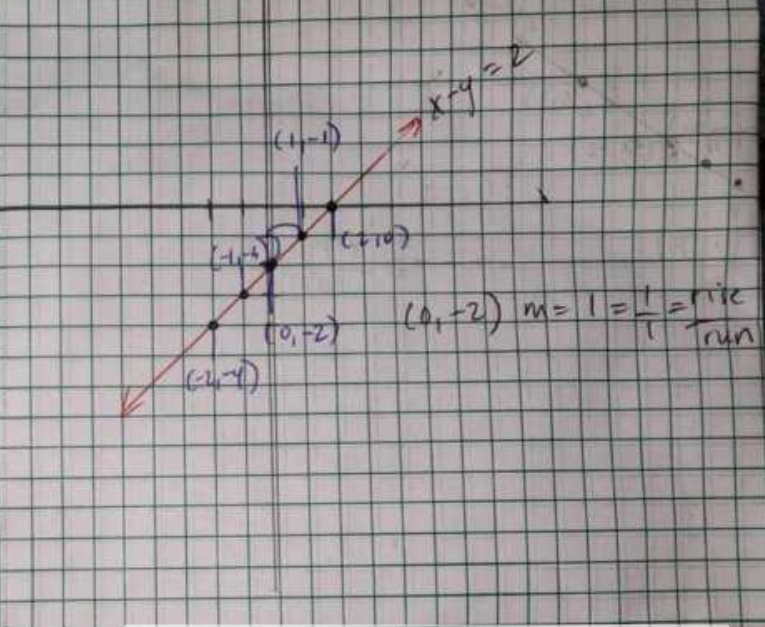 x-y=2
(1,-1)
(0,-2)
(-2,-4)
(0,-2) m= 1 = 1/1 = rise/run